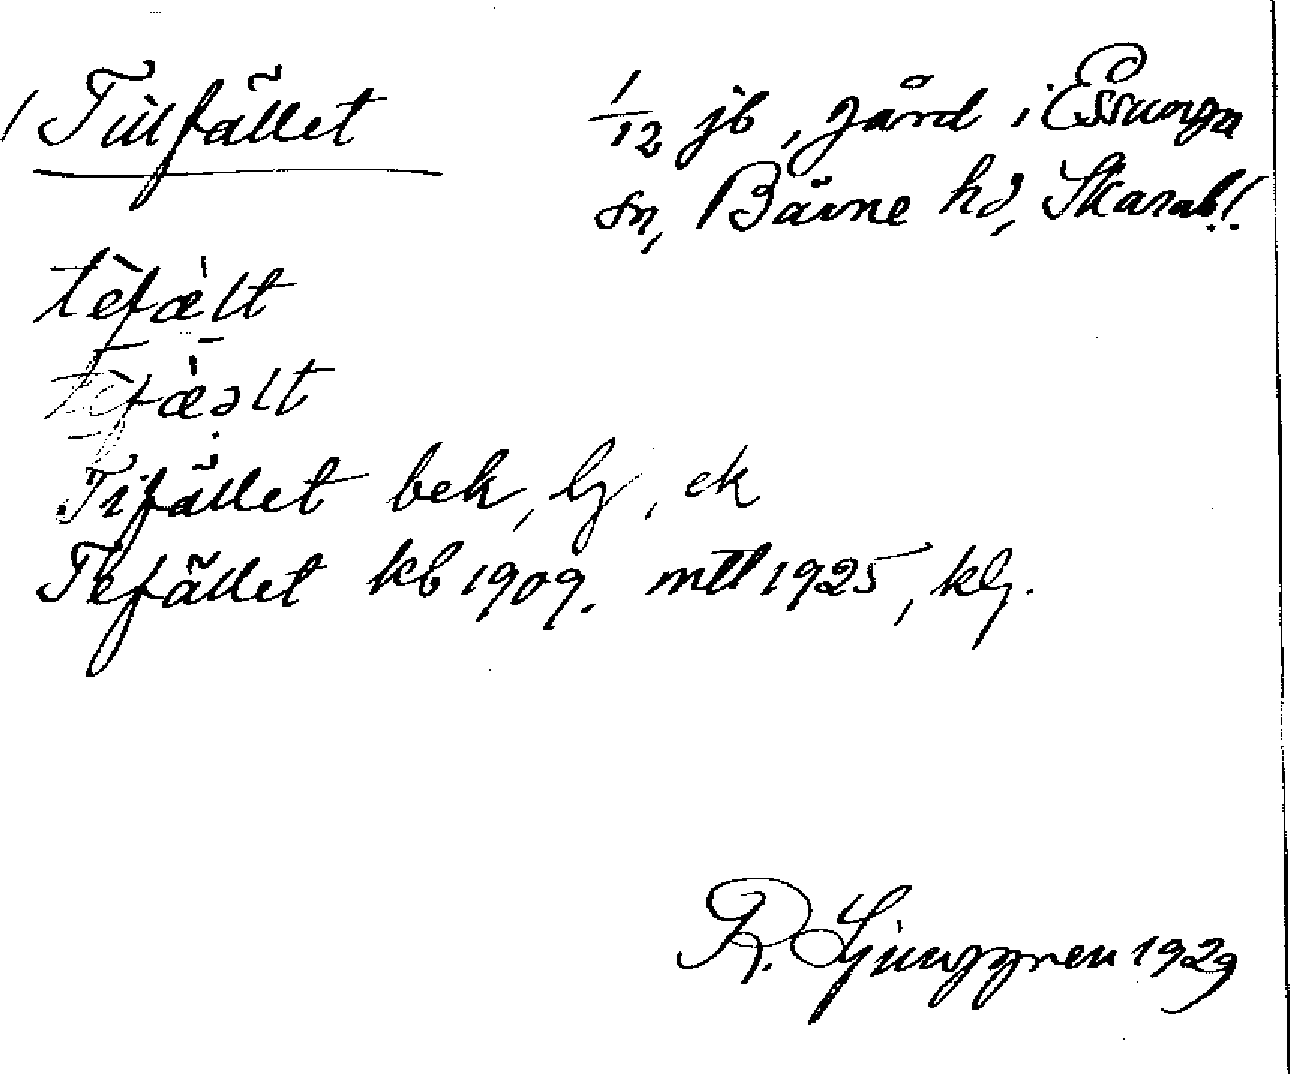 / Tillfället 1/12 jb, gård i Essunga
sn, Barne hd, Skarab.l.
tèfæ̀lt
tèfæ̀əlt
Tifället bek, lg, ek
Tefället kb 1909. mtl 1925, klg.
R. Ljunggren 1929